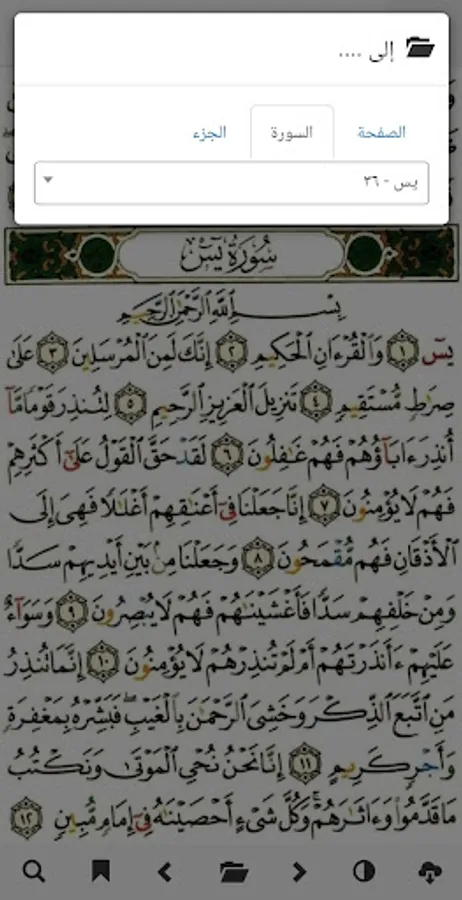 إلى ....
الصفحة
السورة
الجزء
يس - ٣٦
سُورَةُ يسٓ
بِسْمِ ٱللَّهِ ٱلرَّحْمَٰنِ ٱلرَّحِيمِ
يسٓ ١ وَٱلْقُرْءَانِ ٱلْحَكِيمِ ٢ إِنَّكَ لَمِنَ ٱلْمُرْسَلِينَ ٣ عَلَىٰ
صِرَٰطٍ مُّسْتَقِيمٍ ٤ تَنزِيلَ ٱلْعَزِيزِ ٱلرَّحِيمِ ٥ لِتُنذِرَ قَوْمًا مَّآ
أُنذِرَ ءَابَآؤُهُمْ فَهُمْ غَٰفِلُونَ ٦ لَقَدْ حَقَّ ٱلْقَوْلُ عَلَىٰٓ أَكْثَرِهِمْ
فَهُمْ لَا يُؤْمِنُونَ ٧ إِنَّا جَعَلْنَا فِىٓ أَعْنَٰقِهِمْ أَغْلَٰلًا فَهِىَ إِلَى
ٱلْأَذْقَانِ فَهُم مُّقْمَحُونَ ٨ وَجَعَلْنَا مِنۢ بَيْنِ أَيْدِيهِمْ سَدًّا
وَمِنْ خَلْفِهِمْ سَدًّا فَأَغْشَيْنَٰهُمْ فَهُمْ لَا يُبْصِرُونَ ٩ وَسَوَآءٌ
عَلَيْهِمْ ءَأَنذَرْتَهُمْ أَمْ لَمْ تُنذِرْهُمْ لَا يُؤْمِنُونَ ١٠ إِنَّمَا تُنذِرُ
مَنِ ٱتَّبَعَ ٱلذِّكْرَ وَخَشِىَ ٱلرَّحْمَٰنَ بِٱلْغَيْبِ ۖ فَبَشِّرْهُ بِمَغْفِرَةٍ
وَأَجْرٍ كَرِيمٍ ١١ إِنَّا نَحْنُ نُحْىِ ٱلْمَوْتَىٰ وَنَكْتُبُ
مَا قَدَّمُوا۟ وَءَاثَٰرَهُمْ ۚ وَكُلَّ شَىْءٍ أَحْصَيْنَٰهُ فِىٓ إِمَامٍ مُّبِينٍ ١٢